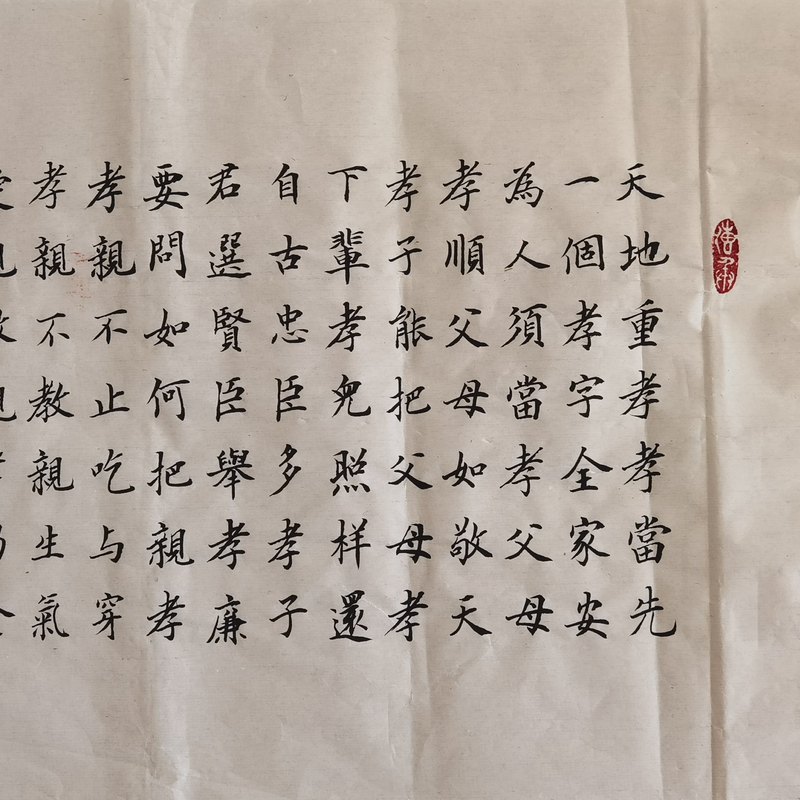 天地重孝孝當先
一個孝字全家安
為人須當孝父母
孝順父母如敬天
孝子能把父母孝
下輩孝兒照样還
自古忠臣多孝子
君選賢臣舉孝廉
要問如何把親孝
孝親不止吃与穿
孝親不教親生氣